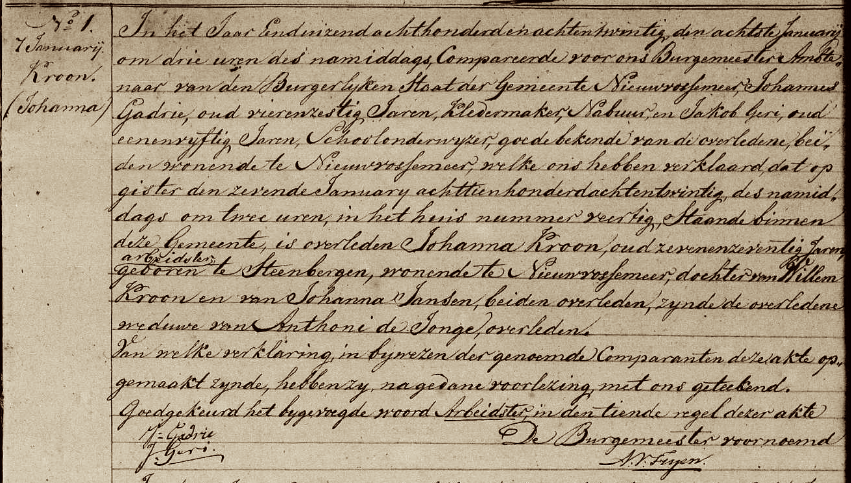 No. 1.
7 Januarij
Kroon.
(Johanna)
In het Jaar Eenduizend achthonderdenachtentwintig, den achtste Januarij
om drie uren des namiddags, Compareerde voor ons Burgemeester Ambte-
naar van den Burgerlyken Staat der Gemeente Nieuwvossemeer, Johannes
Gadrie, oud vierenzestig Jaren, Kledermaker, Nabuur, en Jakob Geri, oud
eenenvyftig Jaren, Schoolonderwyzer, goede bekende van de overledene, bei-
den wonende te Nieuwvossemeer, welke ons hebben verklaard, dat op
gister den zevende January achttienhonderdachtentwintig, des namid-
dags om twee uren, in het huis nummer veertig, Staande binnen
deze Gemeente, is overleden Johanna Kroon, oud zevenenzeventig Jaren,
arbeidster,
geboren te Steenbergen, wonende te Nieuwvossemeer, dochter van Willem
Kroon en van Johanna Jansen, beiden overleden, zynde de overledene
weduwe van Anthoni de Jonge, overleden.
Van welke verklaring, in bywezen der genoemde Comparanten deze akte op-
gemaakt zynde, hebben zy, na gedane voorlezing, met ons geteekend.
Goedgekeurd het bygevoegde woord Arbeidster in den tiende regel dezer akte
J= Gadrie
J. Geri.
De Burgemeester voornoemd